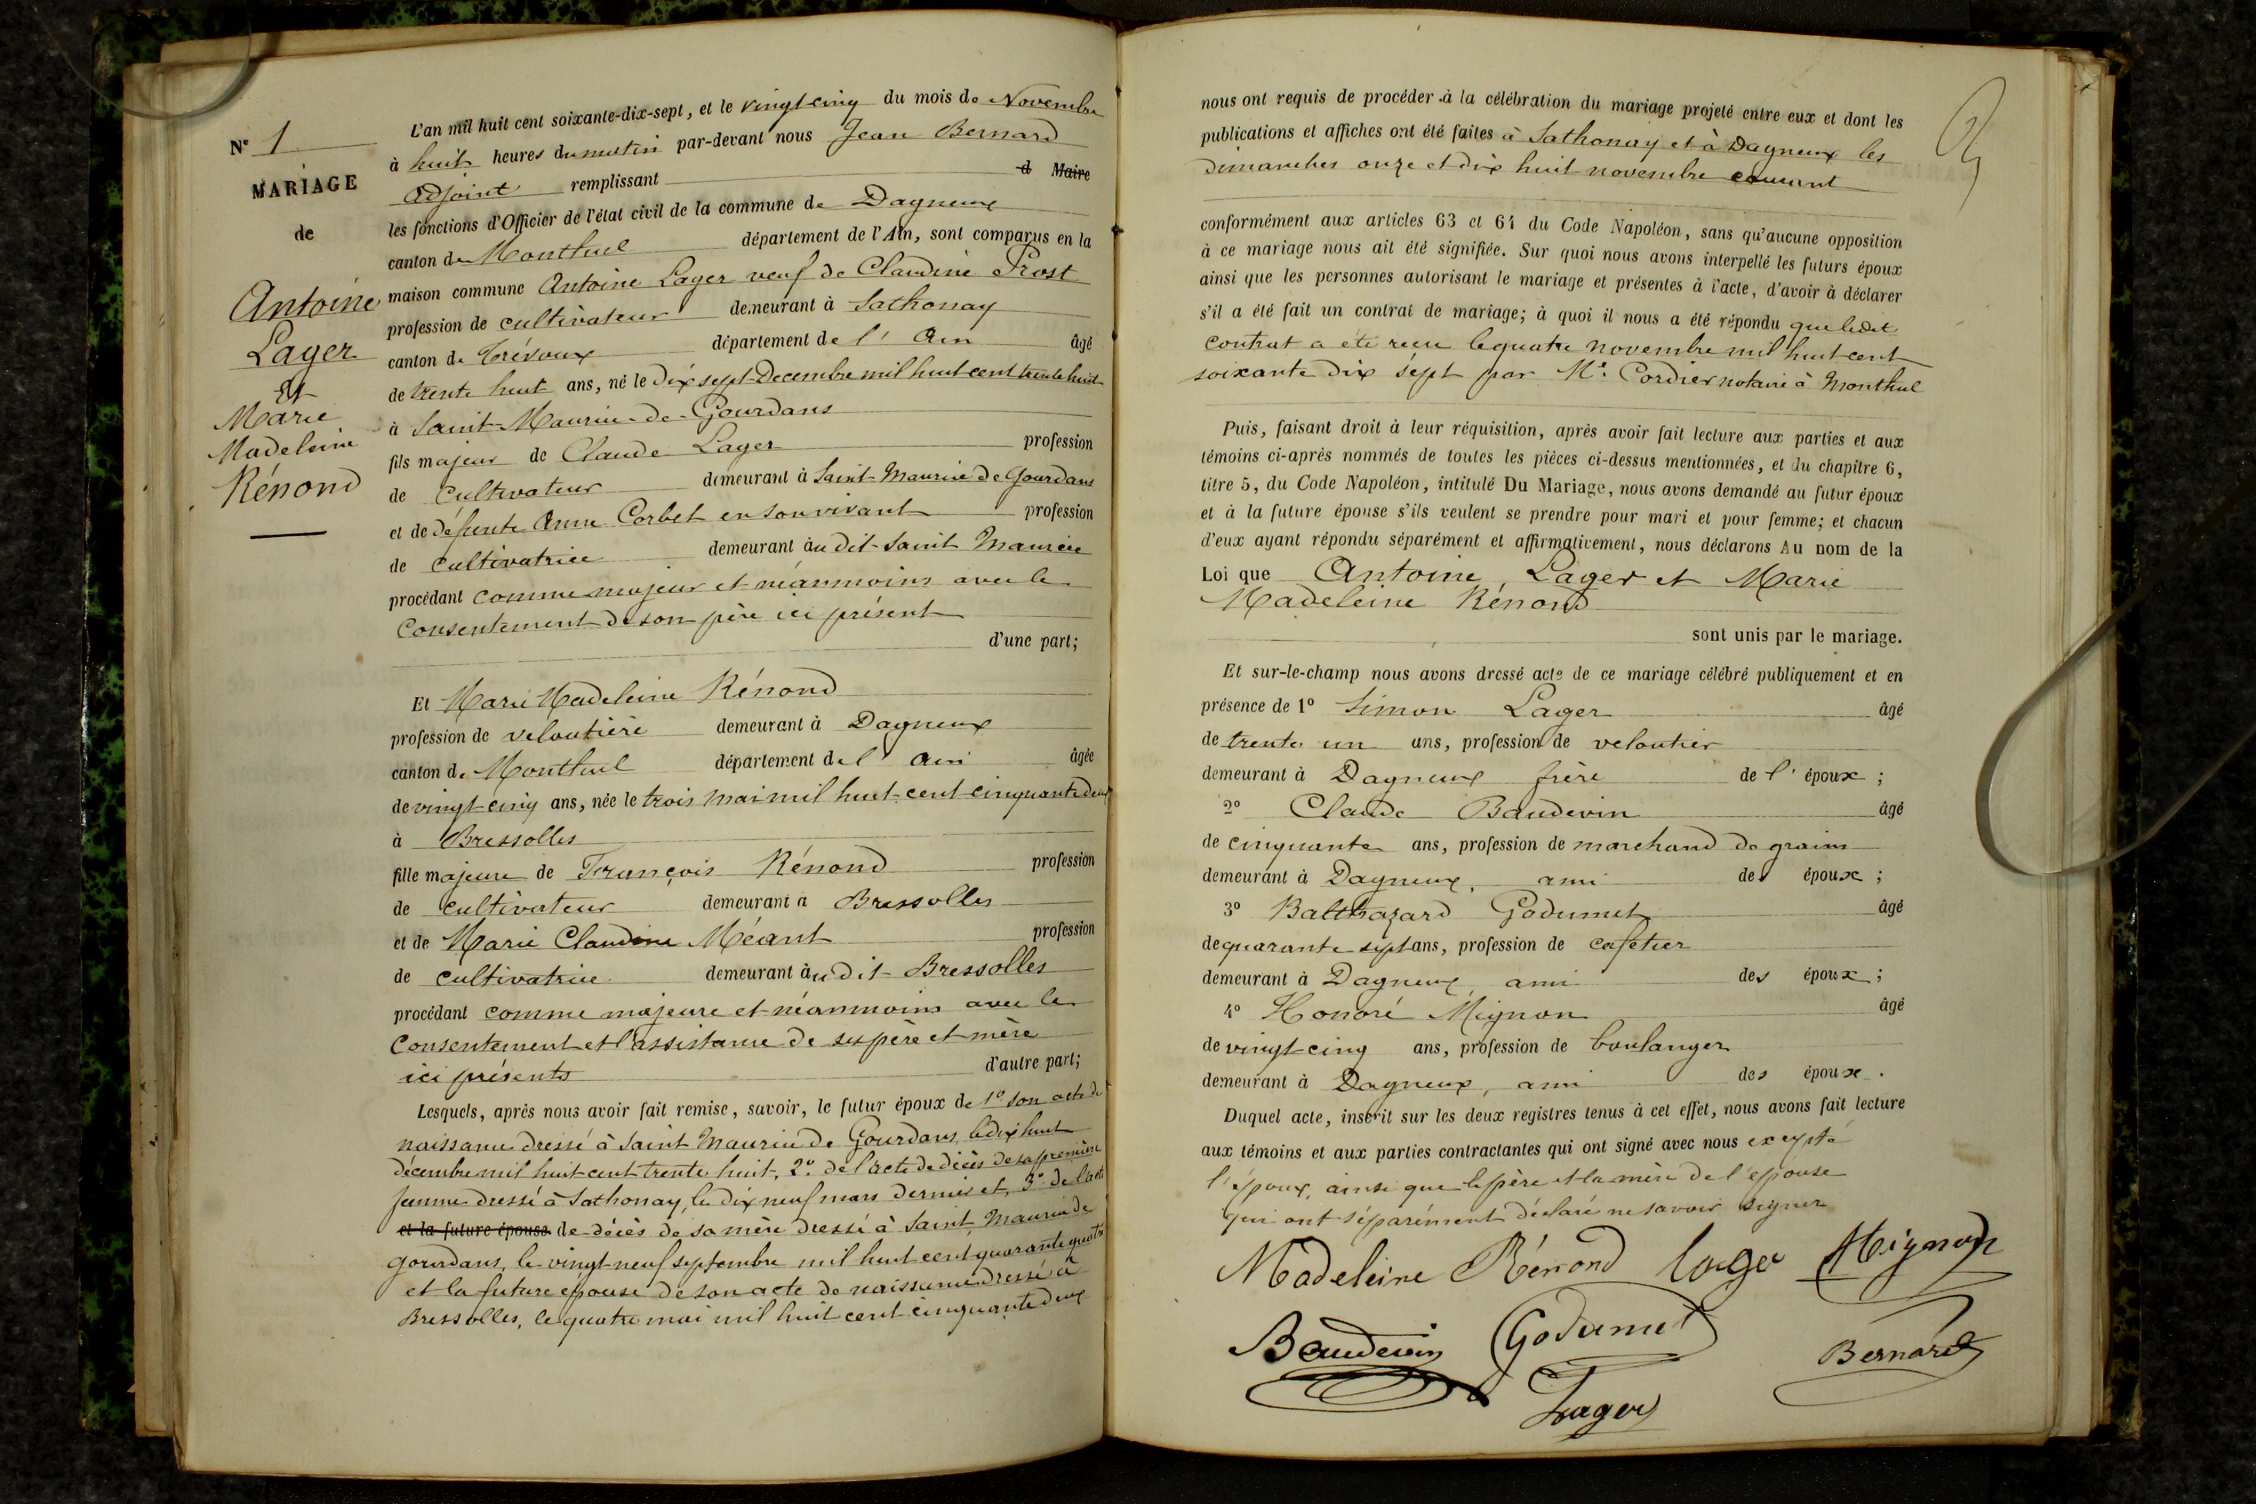 N° 1
MARIAGE
de
Antoine
Lager
Et
Marie
Madeleine
Rénond
L'an mil huit cent soixante-dix-sept, et le vingt-cinq du mois de Novembre
à huit heures du matin par-devant nous Jean Bernard
adjoint remplissant d Maire
les fonctions d'Officier de l'état civil de la commune de Dagneux
canton de Montluel département de l'Ain, sont comparus en la
maison commune Antoine Lager veuf de Claudine Prost
profession de cultivateur demeurant à Sathonay
canton de Trévoux département de l'Ain âgé
de trente huit ans, né le dix sept Decembre mil huit cent trente huit
à Saint-Maurice-de-Gourdans
fils majeur de Claude Lager profession
de cultivateur demeurant à Saint-Maurice de Gourdans
et de défunte Anne Corbet en son vivant profession
de cultivatrice demeurant àu dit Saint Maurice
procédant comme majeur et néanmoins avec le
consentement de son père ici présent
d'une part;
Et Marie Madeleine Rénond
profession de veloutière demeurant à Dagneux
canton de Montluel département de l'Ain âgée
de vingt-cinq ans, née le trois mai mil huit cent cinquante deux
à Bressolles
fille majeure de François Rénond profession
de cultivateur demeurant à Bressolles
et de Marie Claudine Méant profession
de cultivatrice demeurant àu dit Bressolles
procédant comme majeure et néanmoins avec le
consentement et l'assistance de ses père et mère
ici présents d'autre part;
Lesquels, après nous avoir fait remise, savoir, le futur époux de 1° son acte de
naissance dressé à Saint Maurice de Gourdans, le dix huit
décembre mil huit cent trente huit, 2° de l'acte de décès de sa première
femme dressé à Sathonay, le dix neuf mars dernier et, 3° de l'acte
et la future épouse de décès de sa mère dressé à Saint Maurice de
Gourdans, le vingt-neuf septembre mil huit cent quarante quatre
et la future épouse de son acte de naissance dressé à
Bressolles, le quatre mai mil huit cent cinquante deux
nous ont requis de procéder à la célébration du mariage projeté entre eux et dont les
publications et affiches ont été faites à Sathonay et à Dagneux les
dimanches onze et dix huit novembre courant
conformément aux articles 63 et 64 du Code Napoléon, sans qu'aucune opposition
à ce mariage nous ait été signifiée. Sur quoi nous avons interpellé les futurs époux
ainsi que les personnes autorisant le mariage et présentes à l'acte, d'avoir à déclarer
s'il a été fait un contrat de mariage; à quoi il nous a été répondu que ledit
contrat a été reçu le quatre novembre mil huit cent
soixante dix sept par Me Cordier notaire à Montluel
Puis, faisant droit à leur réquisition, après avoir fait lecture aux parties et aux
témoins ci-après nommés de toutes les pièces ci-dessus mentionnées, et du chapitre 6,
titre 5, du Code Napoléon, intitulé Du Mariage, nous avons demandé au futur époux
et à la future épouse s'ils veulent se prendre pour mari et pour femme; et chacun
d'eux ayant répondu séparément et affirmativement, nous déclarons Au nom de la
Loi que Antoine, Lager et Marie
Madeleine Rénond
sont unis par le mariage.
Et sur-le-champ nous avons dressé acte de ce mariage célébré publiquement et en
présence de 1° Simon Lager âgé
de trente un ans, profession de veloutier
demeurant à Dagneux frère de l'époux;
2° Claude Baudevin âgé
de cinquante ans, profession de marchand de grains
demeurant à Dagneux, ami des époux;
3° Balthazard Godumet âgé
de quarante sept ans, profession de cafetier
demeurant à Dagneux, ami des époux;
4° Honoré Mignon âgé
de vingt cinq ans, profession de boulanger
demeurant à Dagneux, ami des époux.
Duquel acte, inscrit sur les deux registres tenus à cet effet, nous avons fait lecture
aux témoins et aux parties contractantes qui ont signé avec nous excepté
l'époux, ainsi que le père et la mère de l'épouse
qui ont séparément déclaré ne savoir signer
Madeleine Rénond Lager Mignon
Baudevin Godumet Bernard
Lager